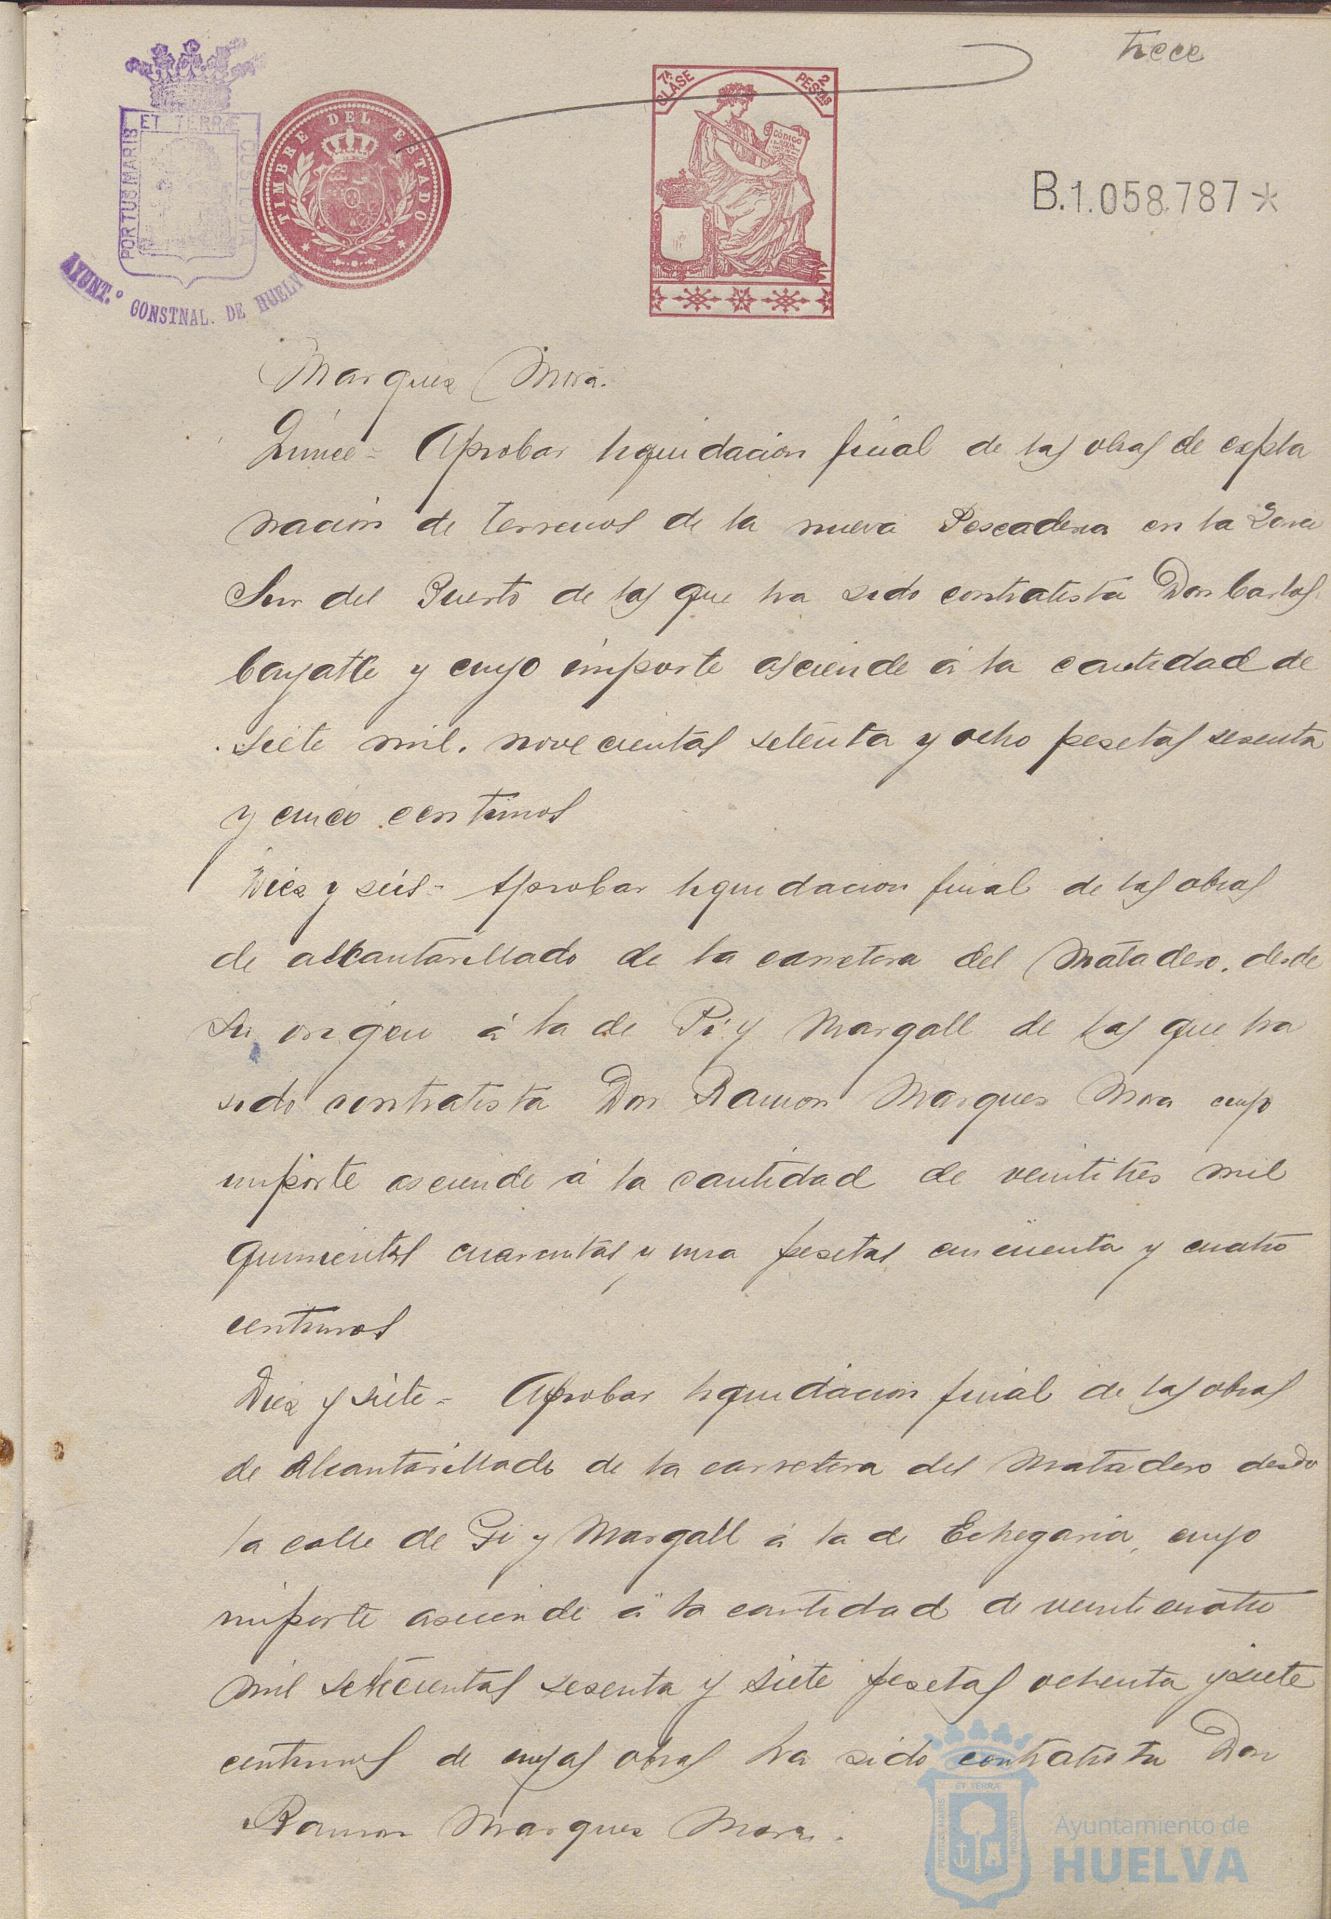 trece
ET TERRÆ
PORTUS MARIS
CUSTODIA
AYUNT.º CONSTNAL. DE HUELV
TIMBRE DEL ESTADO
7ª CLASE
2 PESTAS
CODIGO
B.1.058.787*
Marquez Mora.
Quince = Aprobar liquidacion final de las obras de expla
nación de terrenos de la nueva Pescaderia en la Zona
Sur del Puerto de las que ha sido contratista Don Carlos
y cuyo importe asciende á la cantidad de
siete mil. novecientas setenta y ocho pesetas sesenta
y cinco centimos
Diez y seis = Aprobar liquidacion final de las obras
de alcantarillado de la carretera del Matadero, desde
su origen á la de Pi y Margall de las que ha
sido contratista Don Ramon Marques Mora cuyo
importe asciende á la cantidad de veintitres mil
quinientas cuarentas y una pesetas cincuenta y cuatro
centimos
Diez y siete = Aprobar liquidacion final de las obras
de Alcantarillado de la carretera del Matadero desde
la calle de Pi y Margall á la de Echegaria, cuyo
importe asciende á la cantidad de veinticuatro
mil setecientas sesenta y siete pesetas ochenta y siete
centimos de cuyas obras ha sido contratista Don
Ramon Marques Mora.
ET TERRÆ
PORTUS MARIS
CUSTODIA
Ayuntamiento de
HUELVA